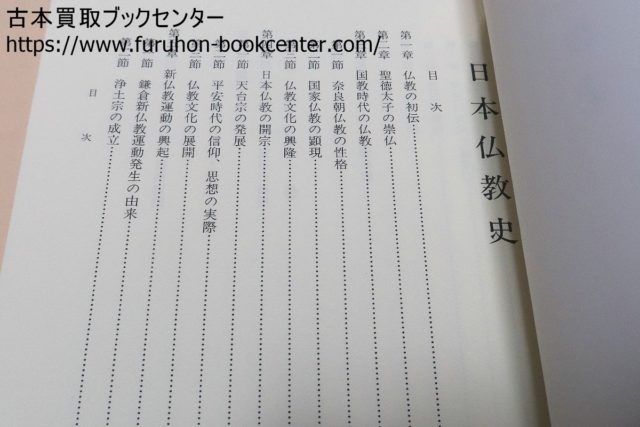 古本買取ブックセンター
https://www.furuhon-bookcenter.com/
日本仏教史
目次
第一章 仏教の初伝
第二章 聖徳太子の崇仏
章 国教時代の仏教
節 奈良朝仏教の性格
節 国家仏教の顕現
節 仏教文化の興隆
章 日本仏教の開宗
節 天台宗の発展
節 平安時代の信仰、思想の実際
節 仏教文化の展開
章 新仏教運動の興起
節 鎌倉新仏教運動発生の由来
節 浄土宗の成立
目次